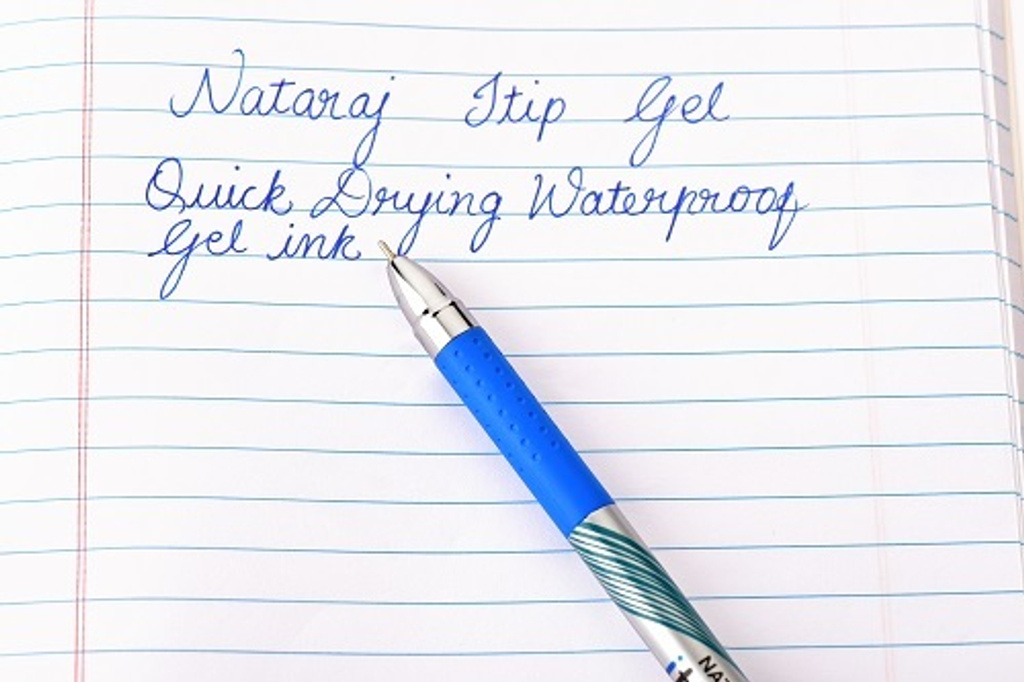 Nataraj Itip Gel
Quick Drying Waterproof
Gel ink